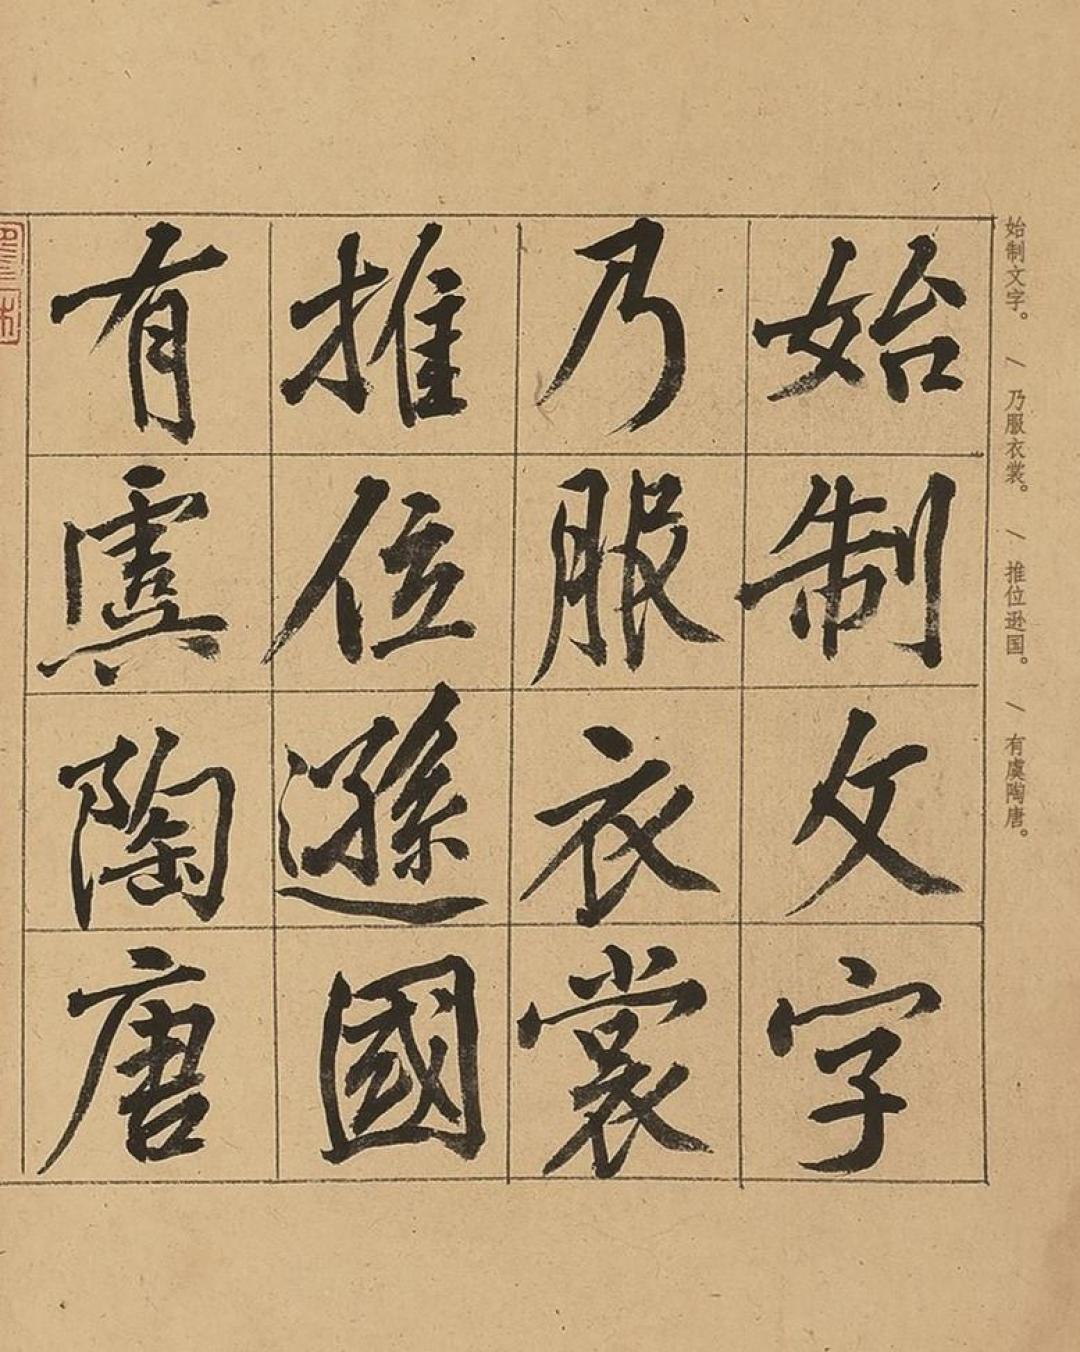 始制文字
乃服衣裳
推位遜國
有虞陶唐
始制文字。/乃服衣裳。/推位逊国。/有虞陶唐。